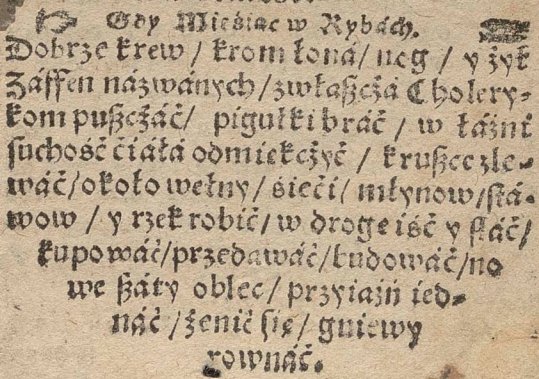 Gdy Mieśiąc w Rybách.
Dobrze krew / krom łoná / nog / y żył
Záffen názwánych / zwłaßczá Cholery-
kom pußczáć / pigułki bráć / w łáźni
suchość ćiáłá odmiękczyć / kruszce zle-
wáć / około wełny / śieći / młynow / stá-
wow / y rzek robić / w drogę iść y słáć /
kupowáć / przedawáć / budowáć / no
we ßáty oblec / przyiaźń ied-
náć / żenić się / gniewy
rownáć.